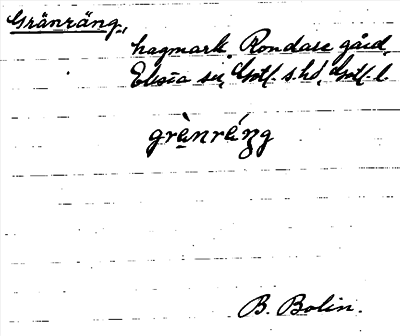 Gränräng.,
hagmark. Rondarve gård,
Eksta sn, Gotl. s. hd, Gotl. l.
grànráŋg
B. Bolin.